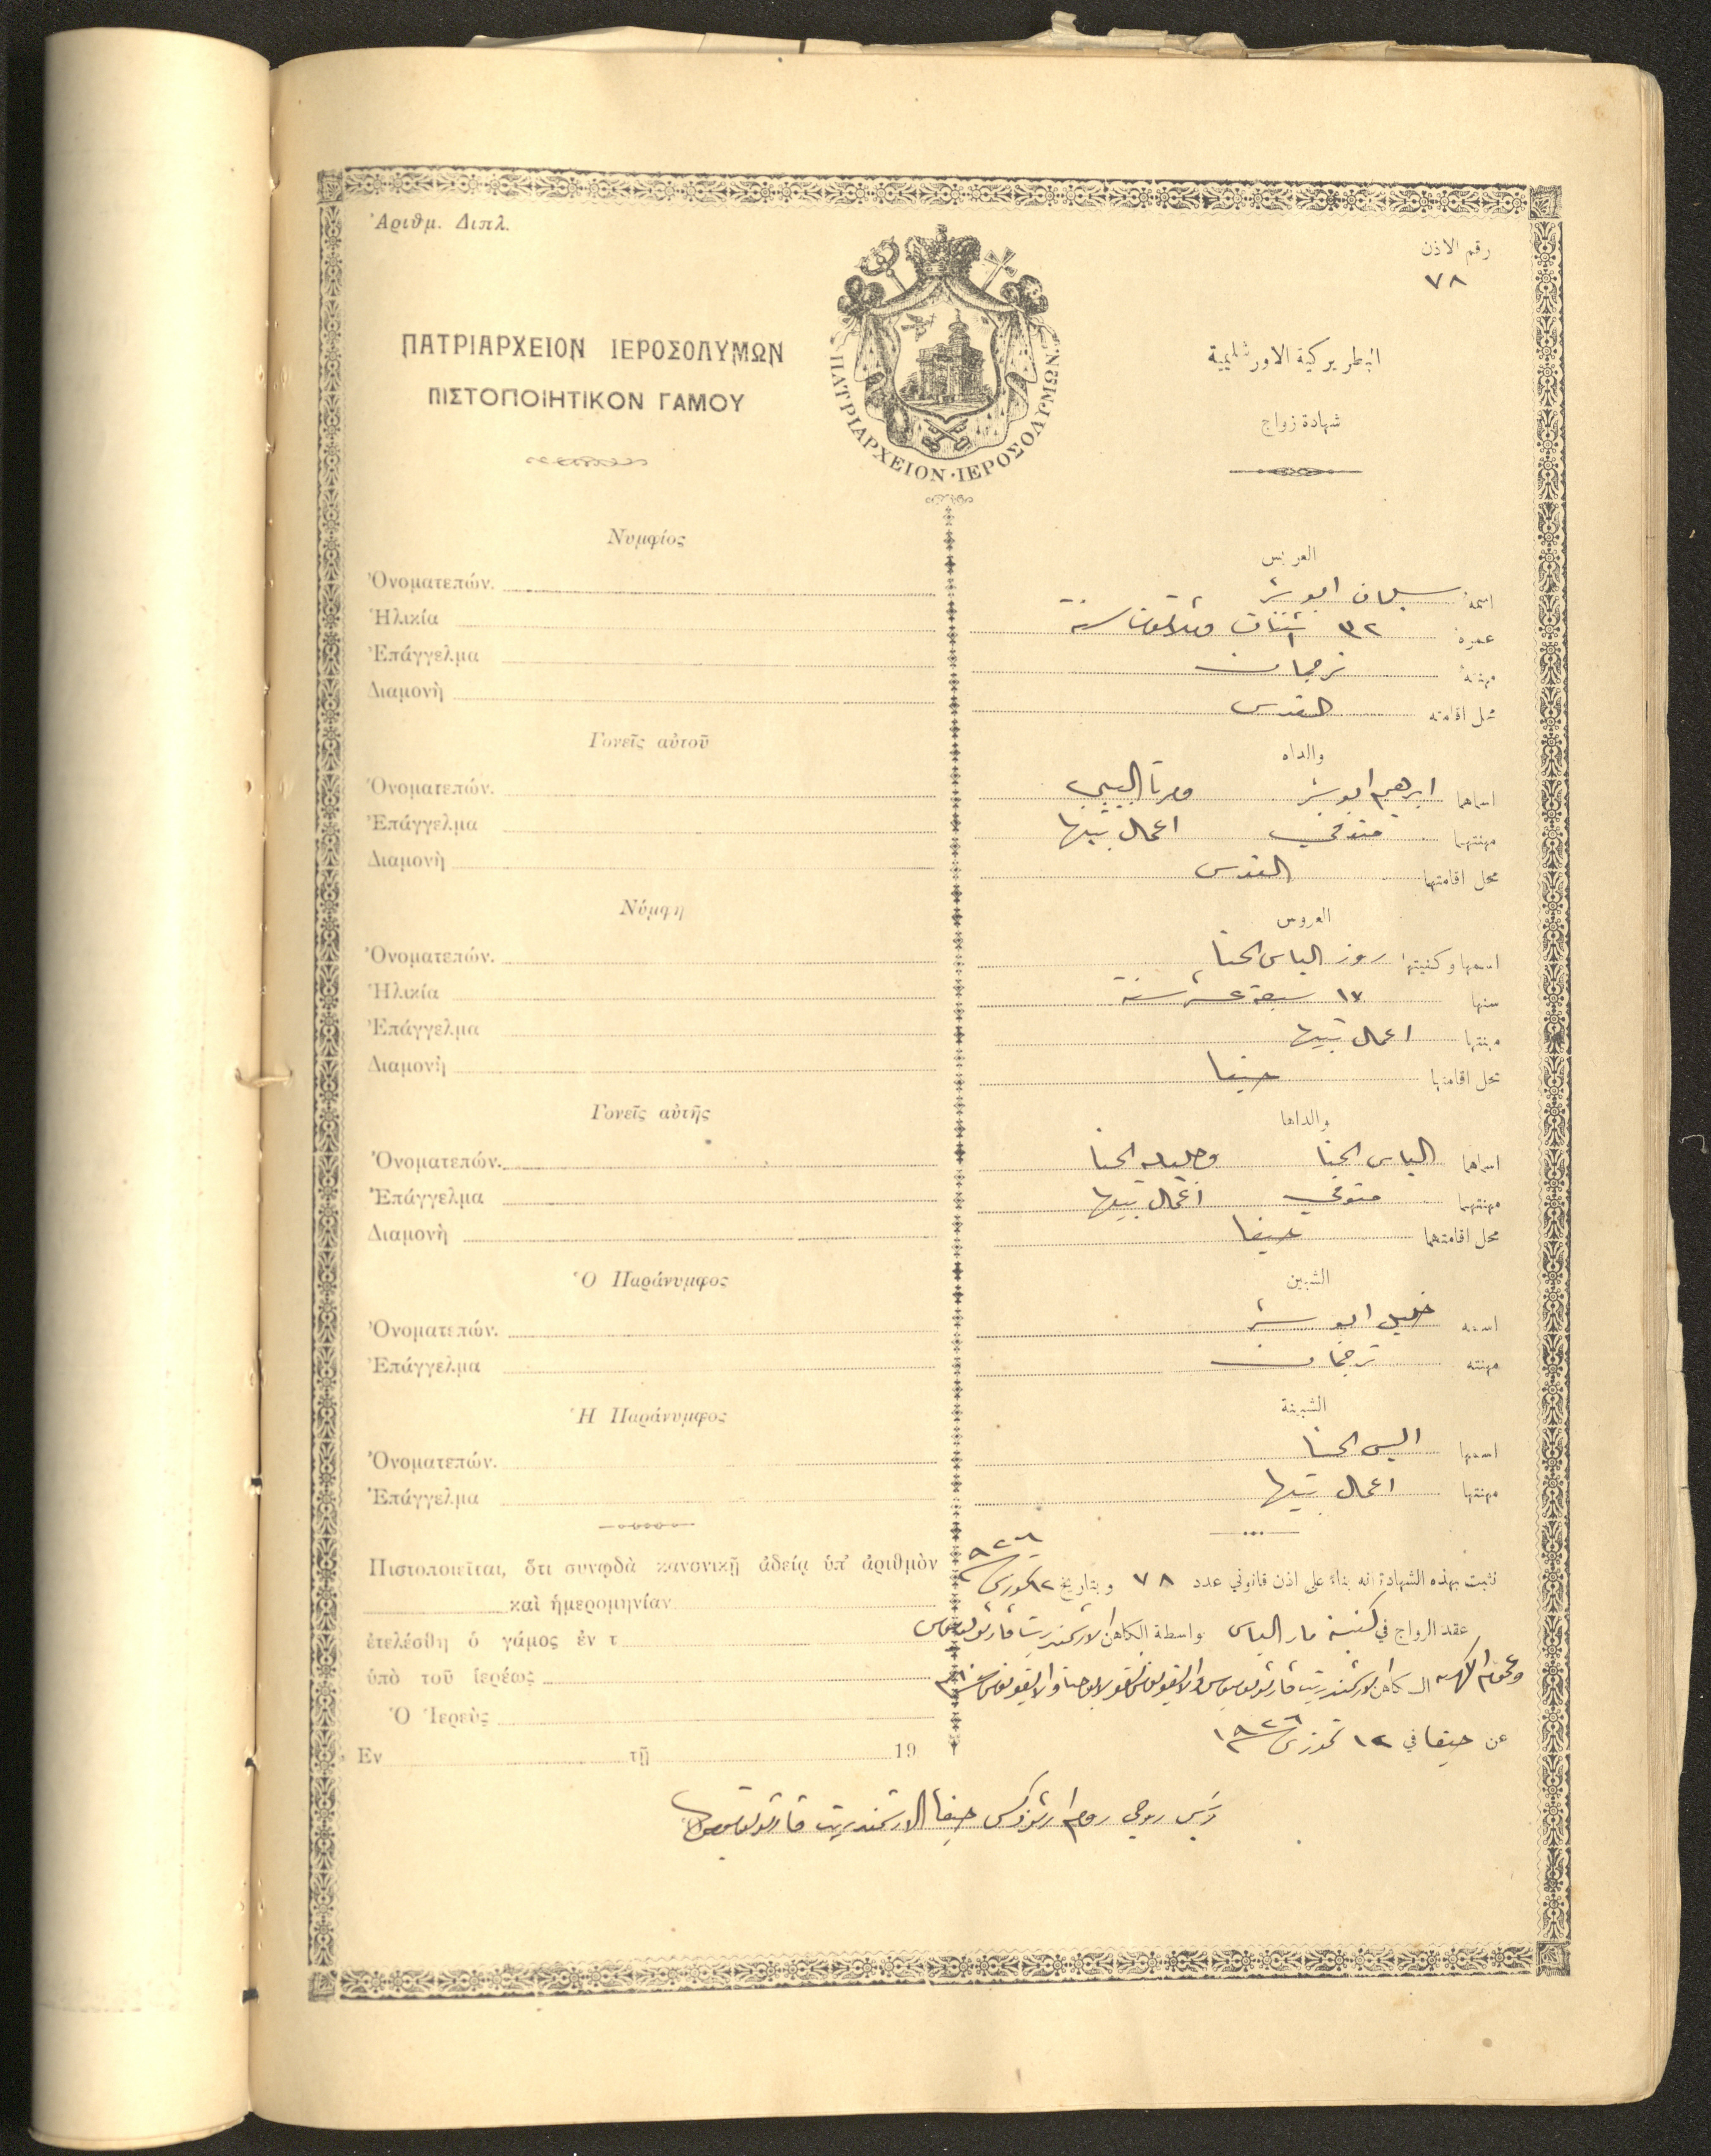 Ἀριθμ. Διπλ.
رقم الاذن
٧٨
ΠΑΤΡΙΑΡΧΕΙΟΝ ΙΕΡΟΣΟΛΥΜΩΝ
ΠΙΣΤΟΠΟΙΗΤΙΚΟΝ ΓΑΜΟΥ
ΠΑΤΡΙΑΡΧΕΙΟΝ·ΙΕΡΟΣΟΛΥΜΩΝ
البطريركية الاورشليمية
شهادة زواج
Νυμφίος
Ὀνοματεπών.
Ἡλικία
Ἐπάγγελμα
Διαμονὴ
Γονεῖς αὐτοῦ
Ὀνοματεπών.
Ἐπάγγελμα
Διαμονὴ
Νύμφη
Ὀνοματεπών.
Ἡλικία
Ἐπάγγελμα
Διαμονὴ
Γονεῖς αὐτῆς
Ὀνοματεπών.
Ἐπάγγελμα
Διαμονὴ
Ὁ Παράνυμφος
Ὀνοματεπών.
Ἐπάγγελμα
Ἡ Παράνυμφος
Ὀνοματεπών.
Ἐπάγγελμα
Πιστοποιεῖται, ὅτι συνῳδὰ κανονικῇ ἀδείᾳ ὑπ' ἀριθμὸν
καὶ ἡμερομηνίαν
ἐτελέσθη ὁ γάμος ἐν τ
ὑπὸ τοῦ ἱερέως
Ὁ Ἱερεὺς
Ἐν τῇ 19
العريس
اسمه سليمان ابو شر
عمره ٣٢ اثنان وثلاثون سنة
مهنته ترجمان
محل اقامته القدس
والداه
اسماهما ابرهيم ابو شر ومرتا
مهنتهما متوفي اعمال بيتها
محل اقامتهما القدس
العروس
اسمها وكنيتها روز الياس الحنا
سنها ١٧ سبعة عشر سنة
مهنتها اعمال بيتها
محل اقامتها حيفا
والداها
اسماهما الياس الحنا وجليله الحنا
مهنتهما متوفي اعمال بيتها
محل اقامتهما حيفا
الشبين
اسمه خليل ابو شر
مهنته ترجمان
الشبينة
اسمها اليس الحنا
مهنتها اعمال بيتها
نثبت بهذه الشهادة انه بناء على اذن قانوني عدد ٧٨ وبتاريخ ١٢ تموز سنة ٩٢٦
عقد الزواج في كنيسة مار الياس بواسطة الكاهن الارشمندريت
الكاهن الارشمندريت
عن حيفا في ١٢ تموز سنة ١٩٢٦
رئيس روحي روم ارثوذكس حيفا الارشمندريت